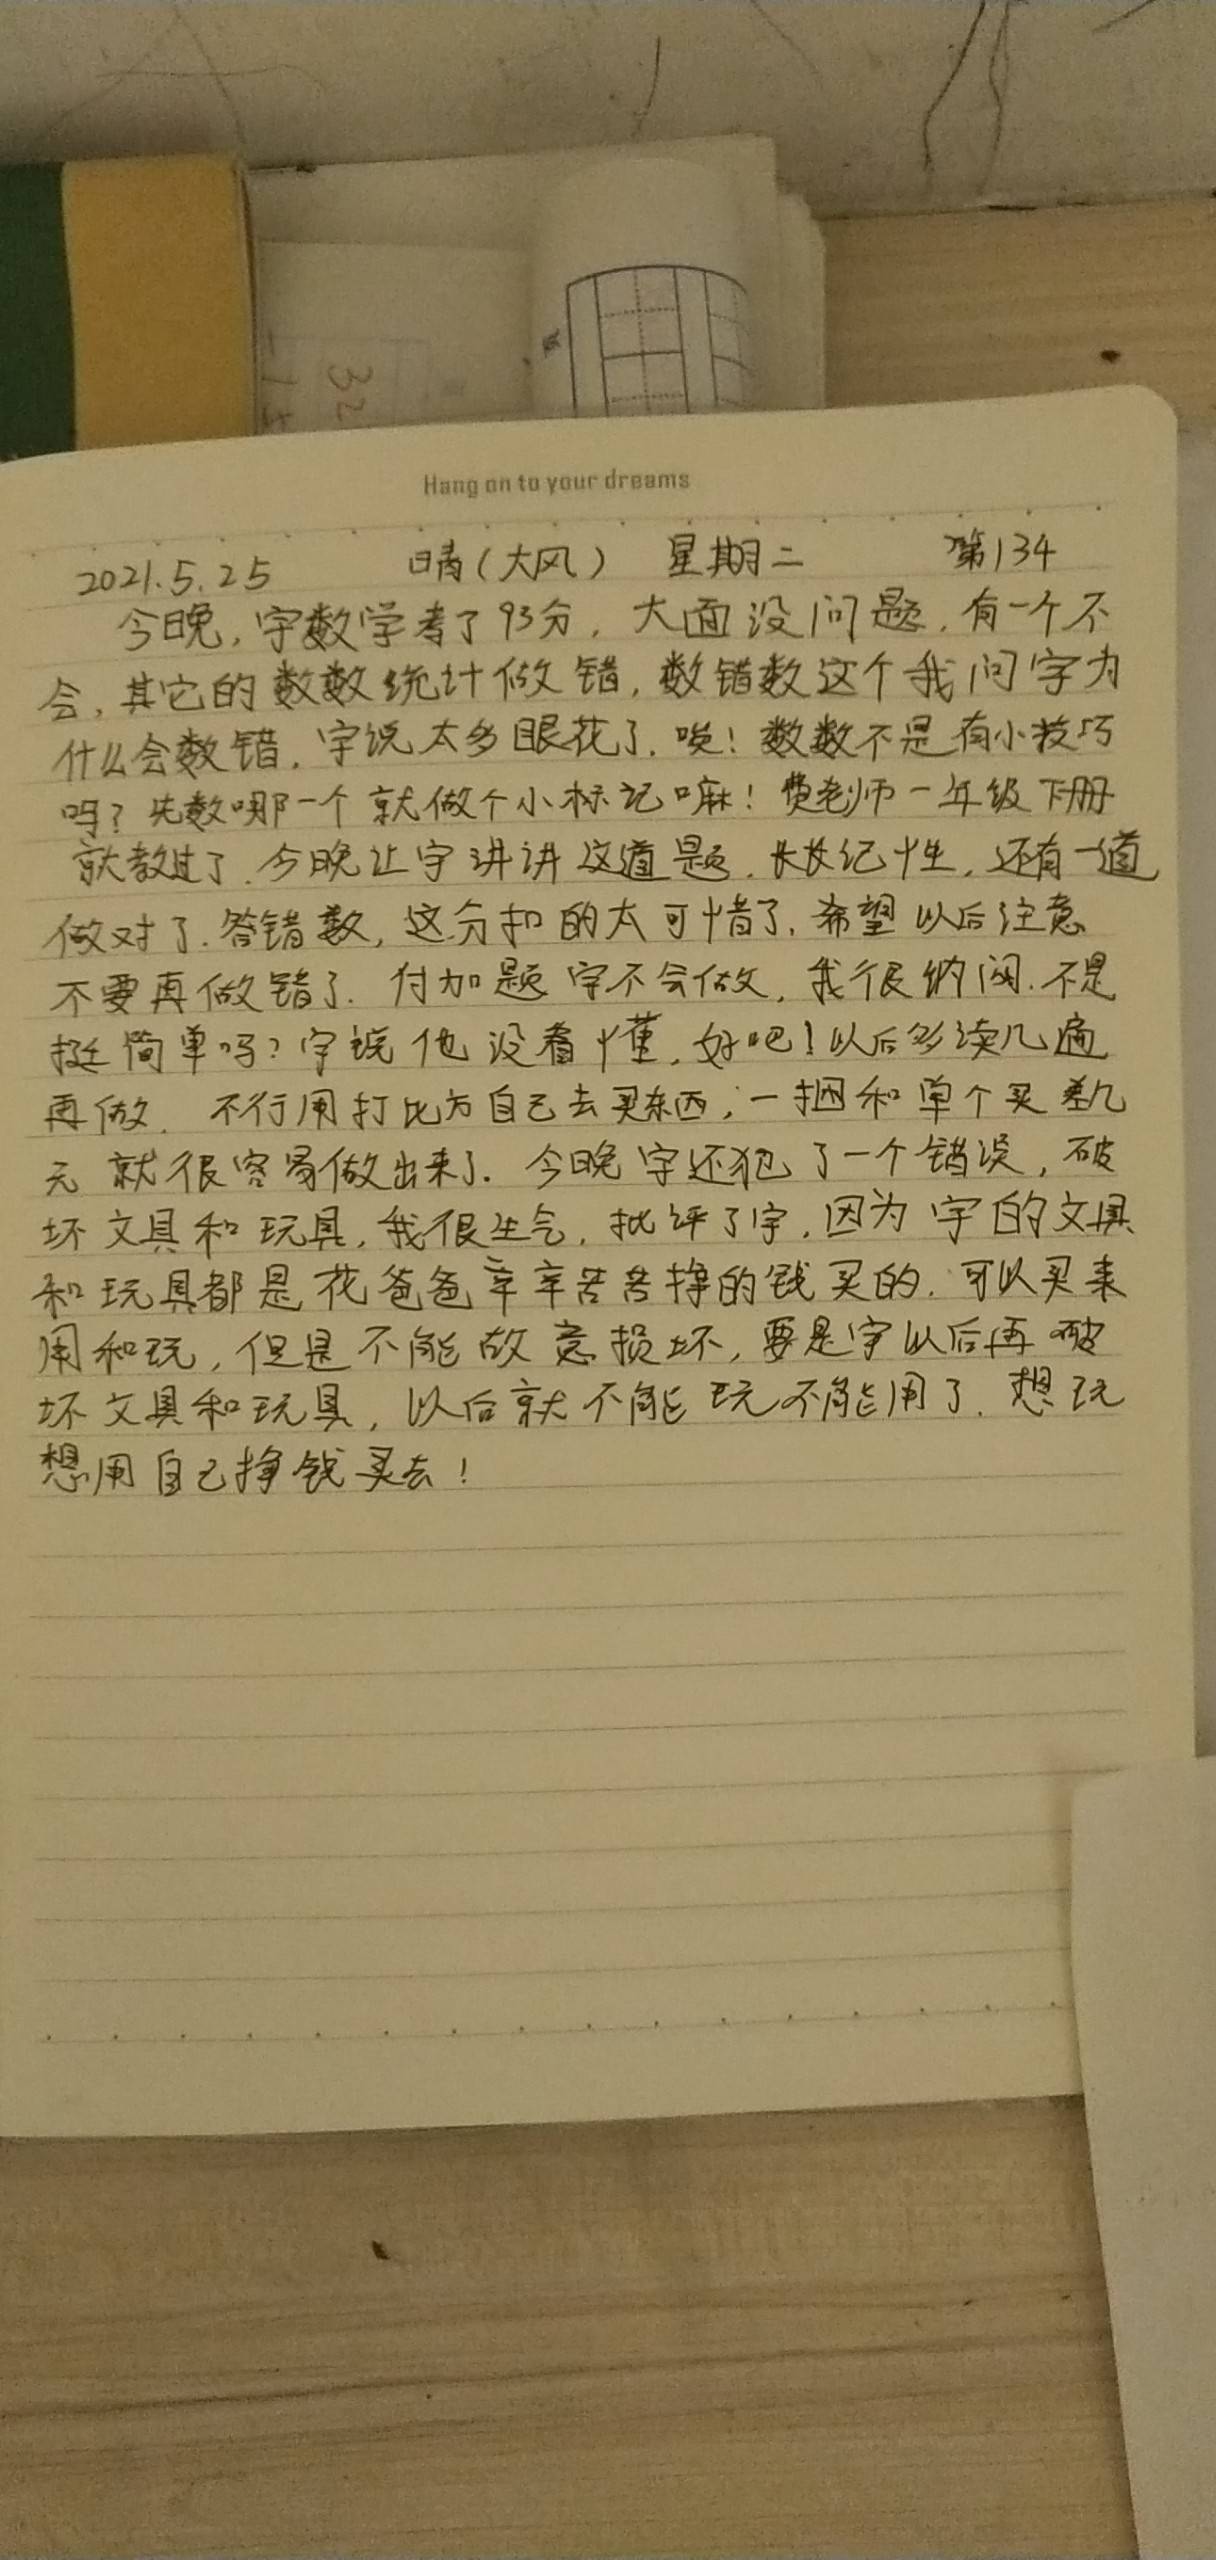 32
Hang on to your dreams
2021.5.25 晴(大风) 星期二 第134
今晚,宇数学考了93分,大面没问题,有一个不
会,其它的数数统计做错,数错数这个我问宇为
什么会数错,宇说太多眼花了,唉!数数不是有小技巧
吗?先数哪一个就做个小标记嘛!费老师一年级下册
就教过了,今晚让宇讲讲这道题,长长记性,还有一道
做对了,答错数,这分扣的太可惜了,希望以后注意
不要再做错了,付加题宇不会做,我很纳闷,不是
挺简单吗?宇说他没看懂,好吧!以后多读几遍
再做,不行用打比方自己去买东西,一捆和单个买差几
元就很容易做出来了.今晚宇还犯了一个错误,破
坏文具和玩具,我很生气,批评了宇,因为宇的文具
和玩具都是花爸爸辛辛苦苦挣的钱买的,可以买来
用和玩,但是不能故意损坏,要是宇以后再破
坏文具和玩具,以后就不能玩不能用了,想玩
想用自己挣钱买去!